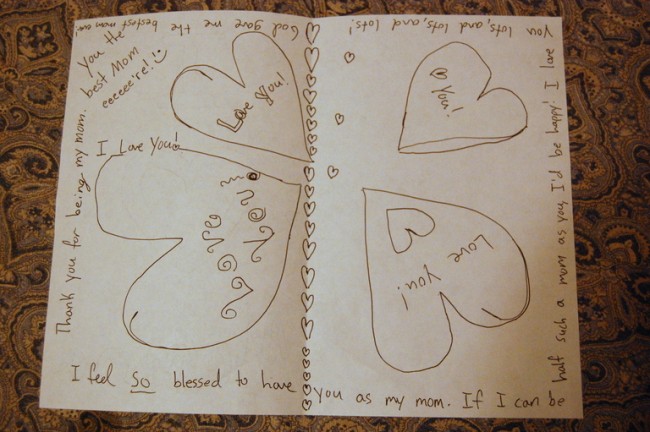 You the
best Mom
eeeeee're!
Love you!
♡ you!
I Love You!
I Love You!
Love you!
I feel so blessed to have you as my mom. If I can be
half such a mom as you, I'd be happy! I love
you lots, and lots, and lots! God gave me the bestest mom
Thank you for being my mom.